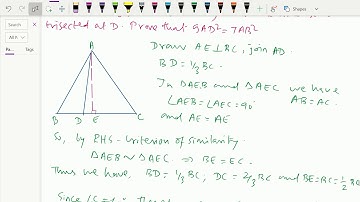 trisected at D. Prove that 9AD² = 7AB²
Draw AE⊥BC, join AD.
BD = 1/3 BC.
In ΔAEB and ΔAEC we have
∠AEB = ∠AEC = 90° AB = AC.
and AE = AE
A
B D E C
So, by RHS-criterion of similarity
ΔAEB ~ ΔAEC ⇒ BE = EC.
Thus we have, BD = 1/3 BC, DC = 2/3 BC and BE = EC = 1/2 BC
Since ∠C =